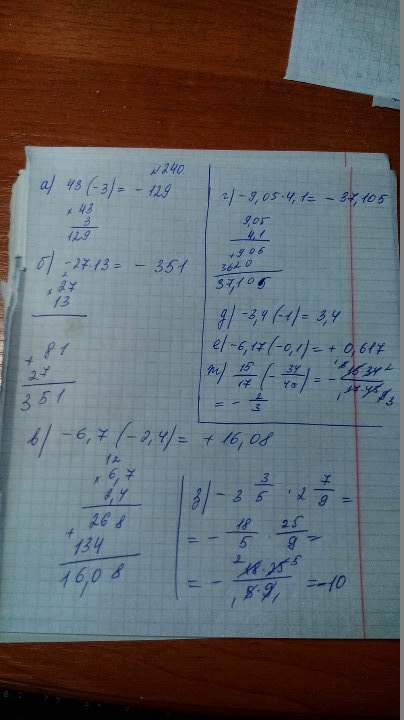 №240
а) 43 (-3) = - 129
× 43
3
129
б) -27·13 = - 351
2
× 27
13
+ 81
27
351
в) -6,7 (-2,4) = + 16,08
12
× 6,7
2,4
+ 268
134
16,08
г) -9,05·4,1 = - 37,105
9,05
4,1
+ 905
3620
37,105
д) -3,4 (-1) = 3,4
е) -6,17 (-0,1) = + 0,617
ж) 15/17 (- 34/45) = - 15·34 2/17·45 3
= - 2/3
з) - 3 3/5 · 2 7/9 =
= - 18/5 · 25/9 =
= - 2 18·25 5/1 5·9 1 = -10